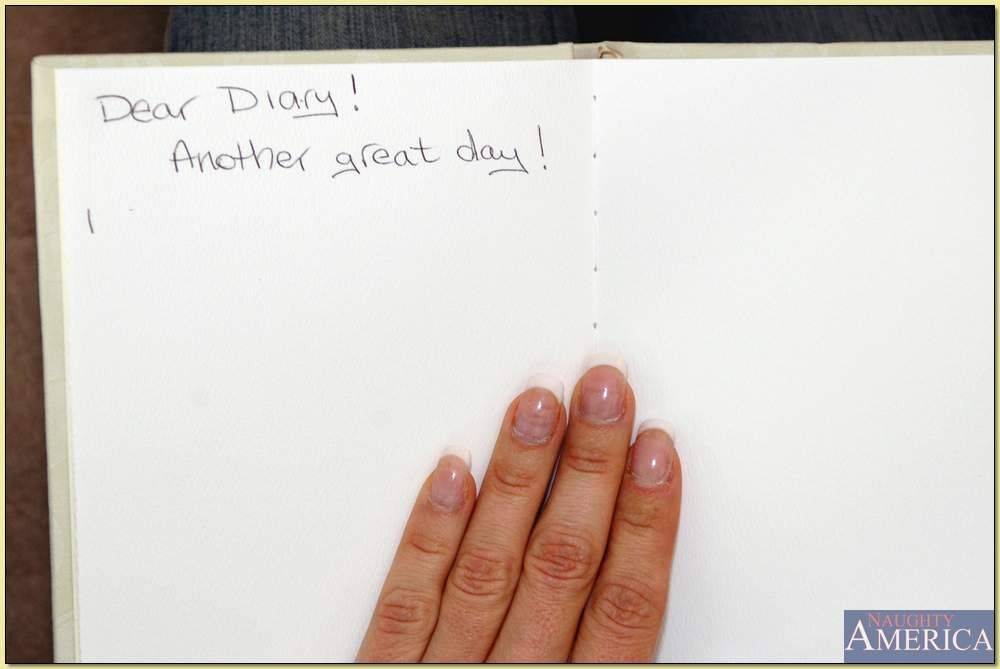 Dear Diary!
Another great day!
I
NAUGHTY
AMERICA